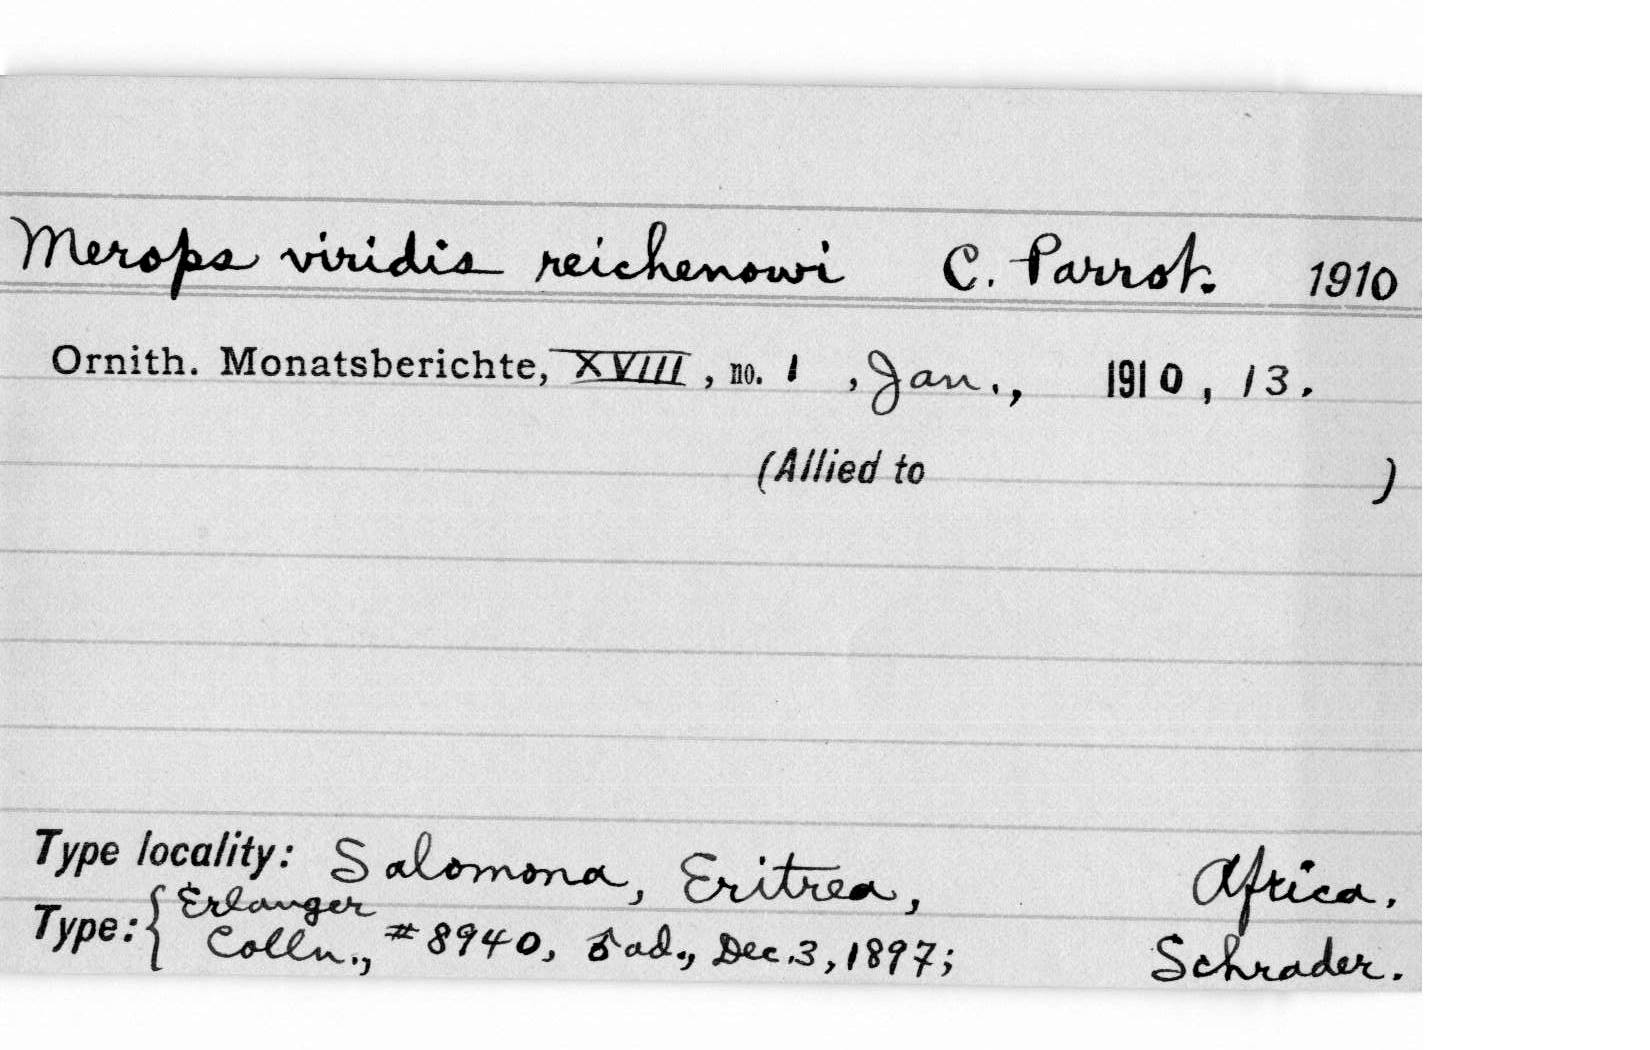 Merops viridis reichenowi C. Parrot. 1910
Ornith. Monatsberichte, XVIII, no. 1, Jan., 1910, 13.
(Allied to )
Type locality: Salomona, Eritrea, Africa.
Type: { Erlanger
Colln., #8940, ♂ ad., Dec. 3, 1897; Schrader.